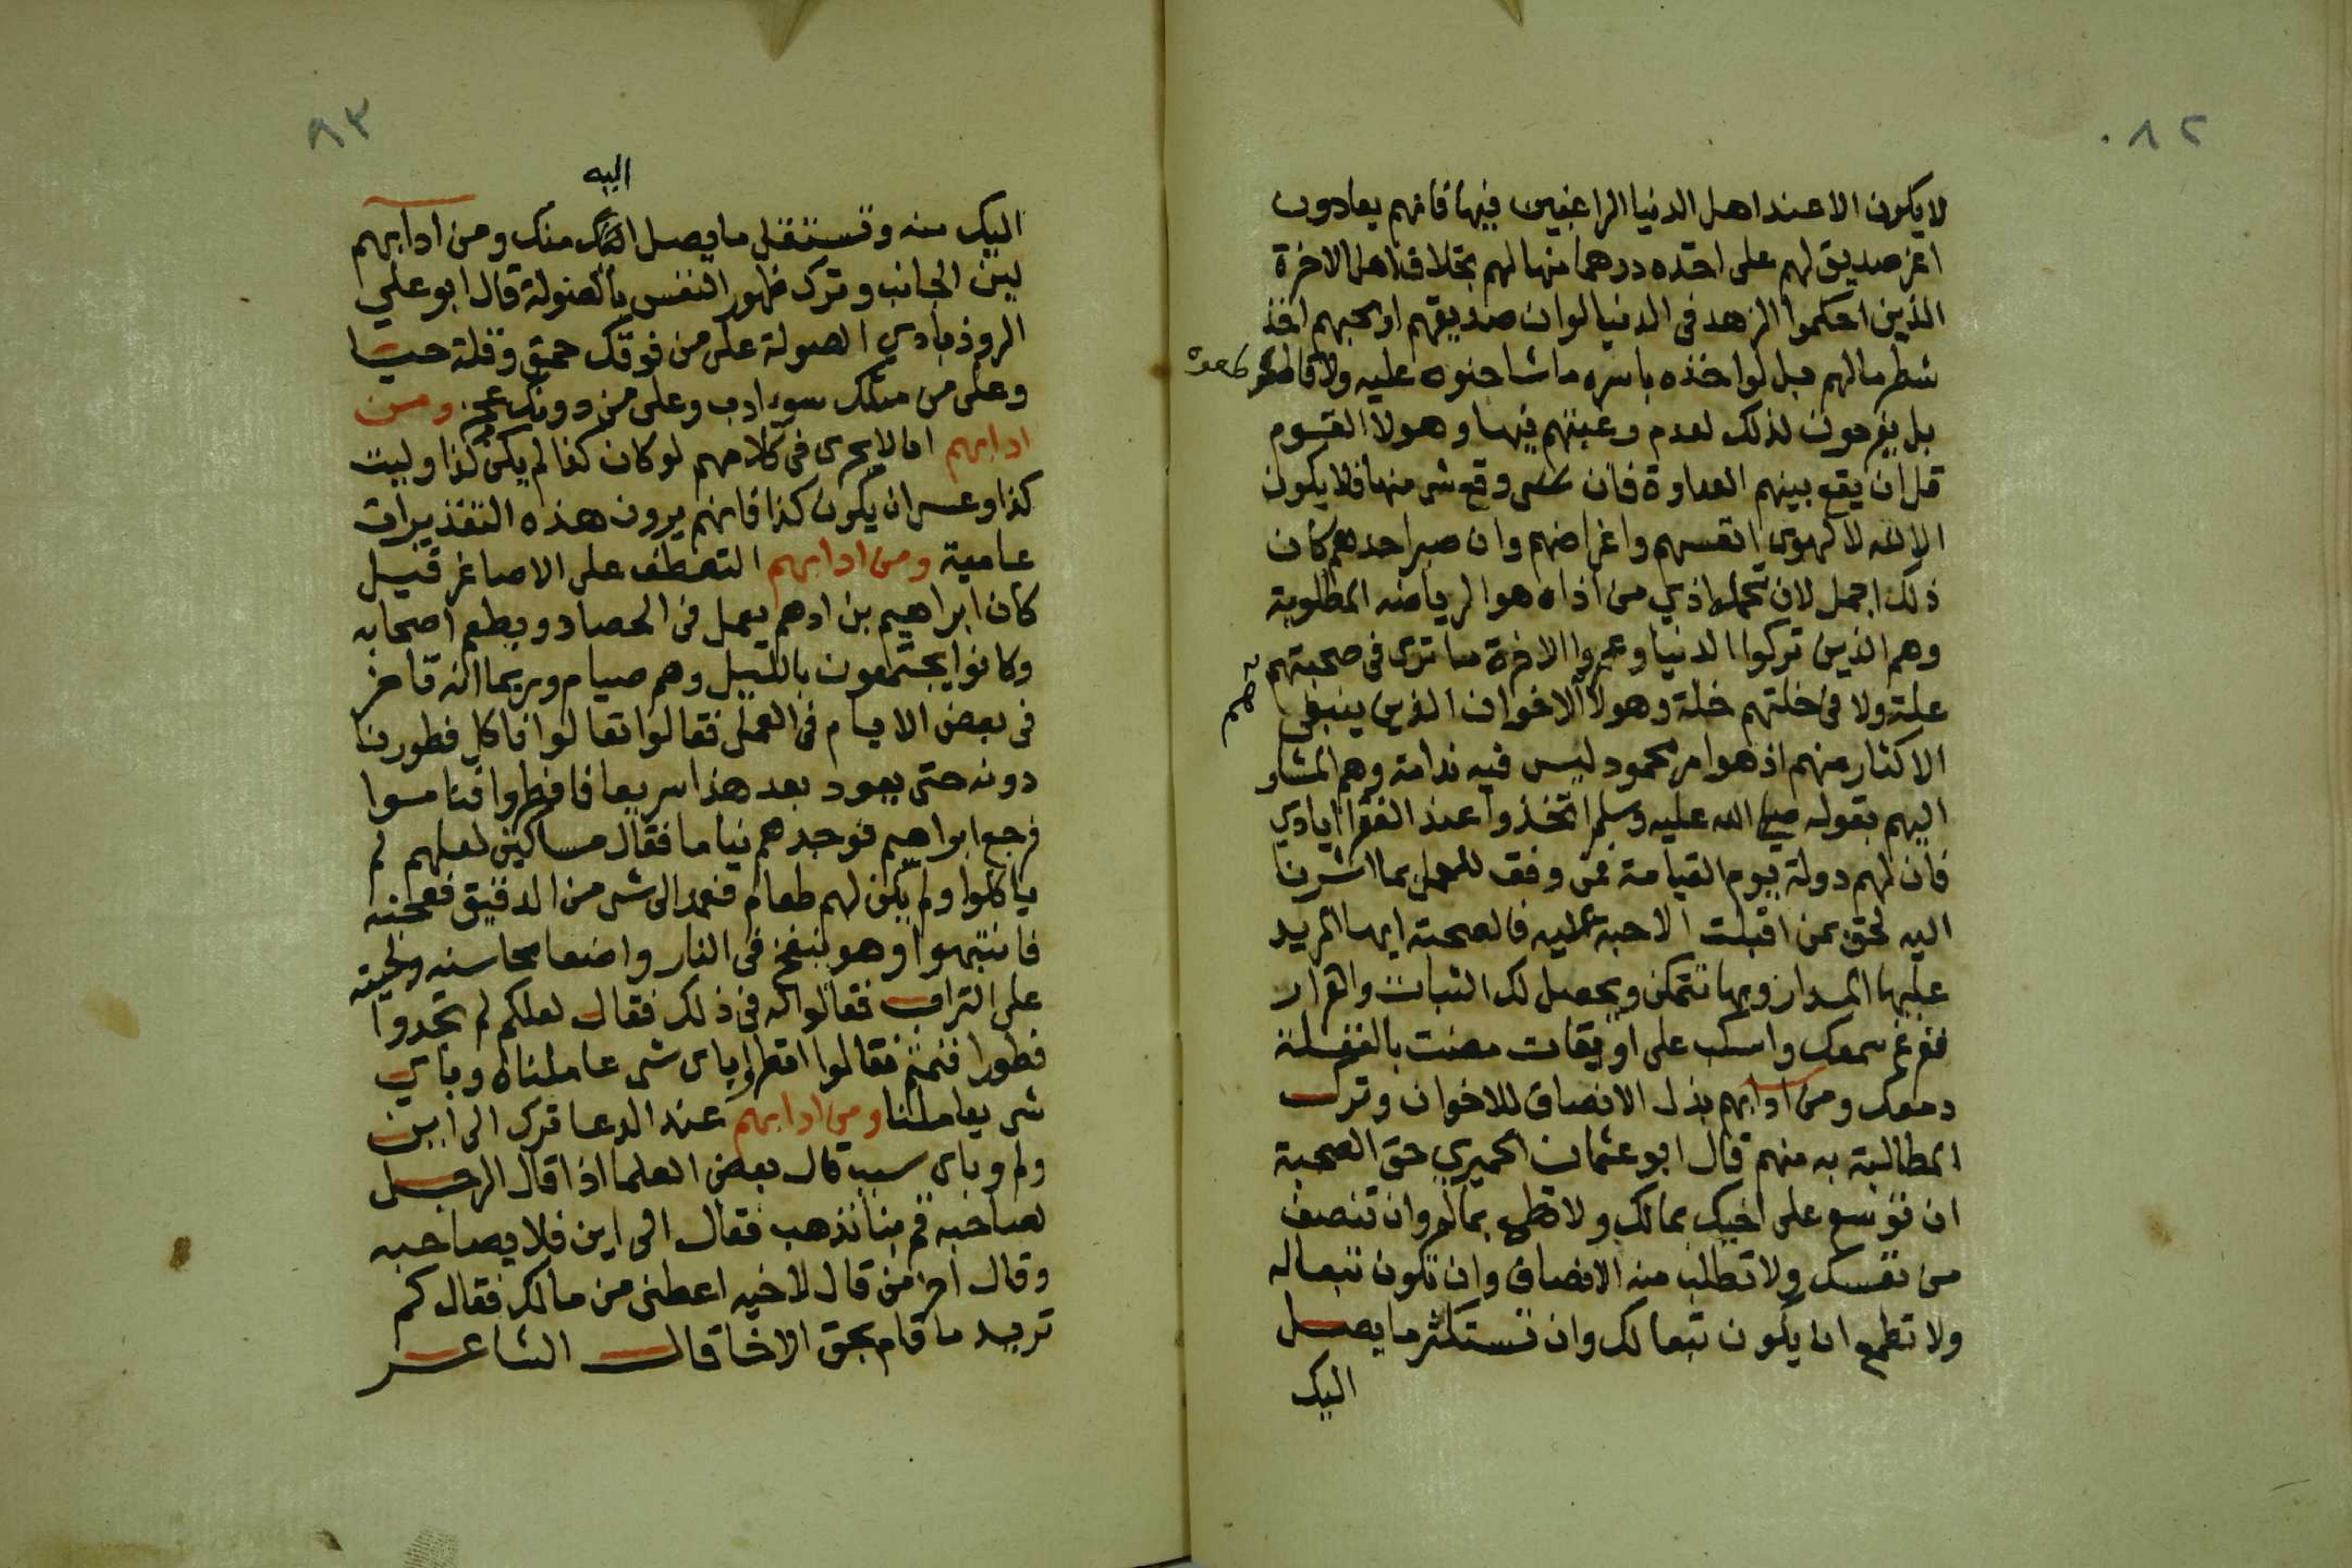 ٨٢
لا يكون الا عند اهل الدنيا الراغبين فيها فانهم يعادون
اعز صديق لهم على اخذه درهما منها لهم بخلاف اهل الاخرة
الذين احكموا الزهد في الدنيا لو ان صديقهم او محبهم اخذ
شطر مالهم بل لو اخذه باسره ما شاحنوه عليه ولا قاطعوه
بل يفرحون لذلك لعدم رغبتهم فيها وهولا القوم
قل ان يقع بينهم العداوة فان وقع شي منها فلا يكون
الا لله لا لهوي انفسهم واغراضهم وان صبر احدهم كان
ذلك اجمل لان تحمل اذي من اذاه هو الرياضه المطلوبة
وهم الذين تركوا الدنيا وعمروا الاخرة ما تري في صحبتهم
علة ولا في خلتهم خلة وهولا الاخوان الذين ينبغي لهم
الاكثار منهم اذ هو امر محمود ليس فيه ندامة وهم المشار
اليهم بقوله صلى الله عليه وسلم اتخذوا عند الفقرا ايادي
فان لهم دولة يوم القيامة فمن وفق للعمل بما اشرنا
اليه لحق بمن اقبلت الاحبه عليه فالصحبة ايها المريد
عليها المدار وبها تتمكن ويحصل لك الثبات والقرار
ففرغ سمعك واسكب على اويقات مضت بالغفلة
دمعك ومن ادابهم بذل الانصاف للاخوان وترك
المطالبة به منهم قال ابو عثمان الحميري حق الصحبة
ان توسع على اخيك بمالك ولا تطمع بماله وان تنصف
من نفسك ولا تطلب منه الانصاف وان تكون تبعا له
ولا تطمع ان يكون تبعا لك وان تستكثر ما يصل
اليك
٨٣
اليه
اليك منه وتستقل ما يصل منك ومن ادابهم
لين الجانب وترك ظهور النفس بالصولة قال ابو علي
الروذبادي الصولة على من فوقك حمق وقلة حيا
وعلى من مثلك سوء ادب وعلى من دونك عجز ومن
ادابهم ان لا يجرى في كلامهم لو كان كذا لم يكن كذا وليت
كذا وعسى ان يكون كذا فانهم يرون هذه التقديرات
عامية ومن ادابهم التعطف على الاصاغر قيل
كان ابراهيم بن ادهم يعمل في الحصاد ويطعم اصحابه
وكانوا يجتمعون بالليل وهم صيام وربما انه تاخر
في بعض الايام في العمل فقالوا تعالوا ناكل فطورنا
دونه حتى يعود بعد هذا سريعا فافطروا وناموا
فرجع ابراهيم فوجدهم نياما فقال مساكين لعلهم لم
ياكلوا ولم يكن لهم طعام فعمد الى شي من الدقيق فعجنه
فانتبهوا وهو ينفخ في النار واضعا محاسنه ولحيته
على التراب فقالوا له في ذلك فقال لعلكم لم تجدوا
فطورا فنمتم فقالوا انظروا باى شي عاملناه وباي
شي يعاملنا ومن ادابهم عند الدعا ترك الى اين
ولم وباى سبب قال بعض العلما اذا قال الرجل
لصاحبه قم بنا نذهب فقال الى اين فلا يصاحبه
وقال اخر من قال لاخيه اعطني من مالك فقال كم
تريد ما قام بحق الاخا قال الشاعر